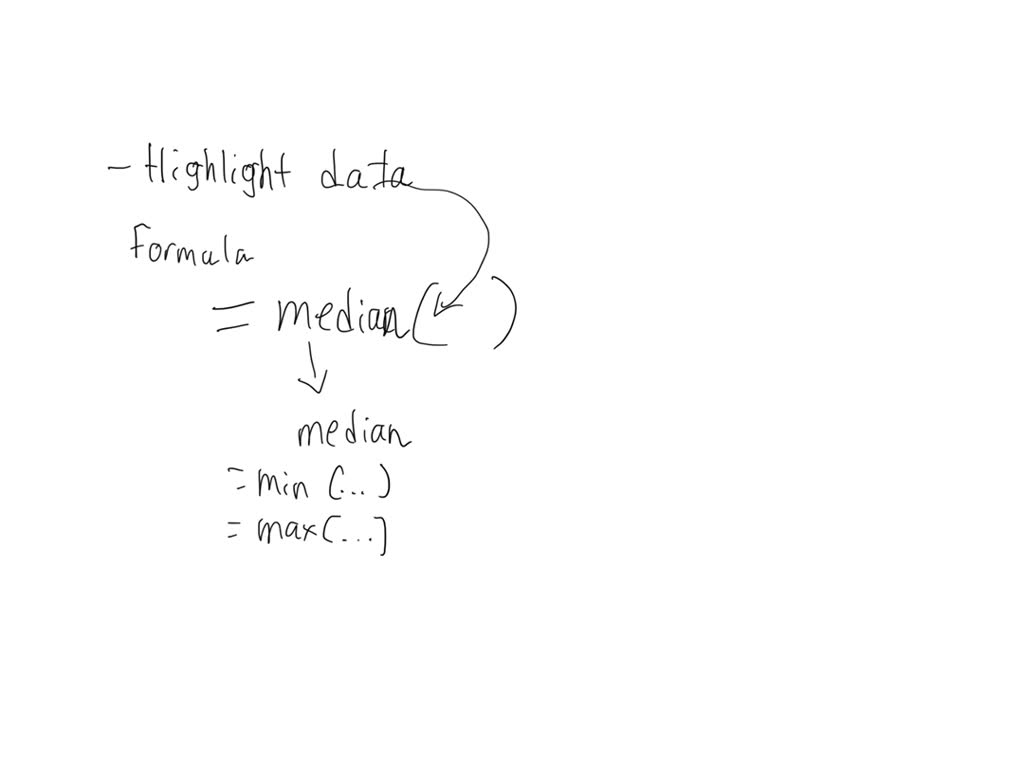 - Highlight data
Formula
= median( )
median
= min (...)
= max(...]